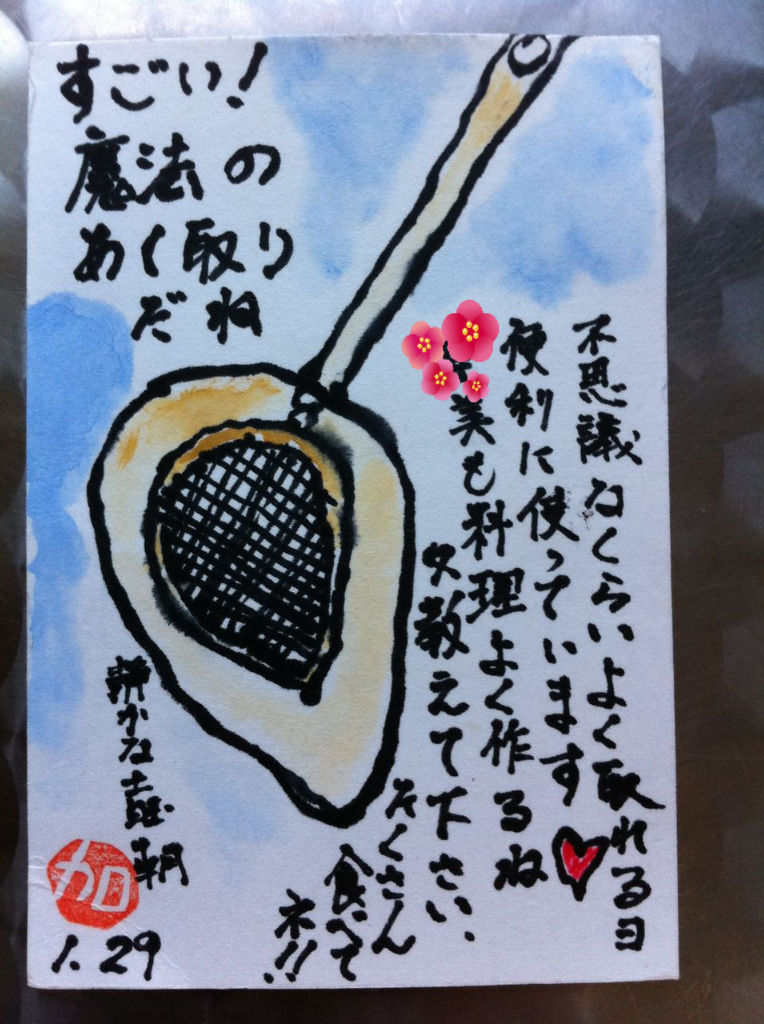 すごい!
魔法の
あく取り
だね
不思議なくらいよく取れる日
便利に使っています
美も料理よく作るね
又教えて下さい、
たくさん
食べて
ネ!!
静かな
朝
加
1.29